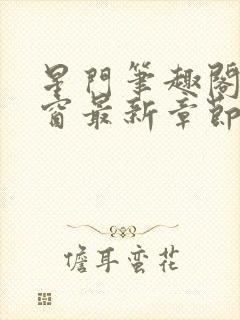 星門筆趣閣
窗最新章節
儋耳蛮花